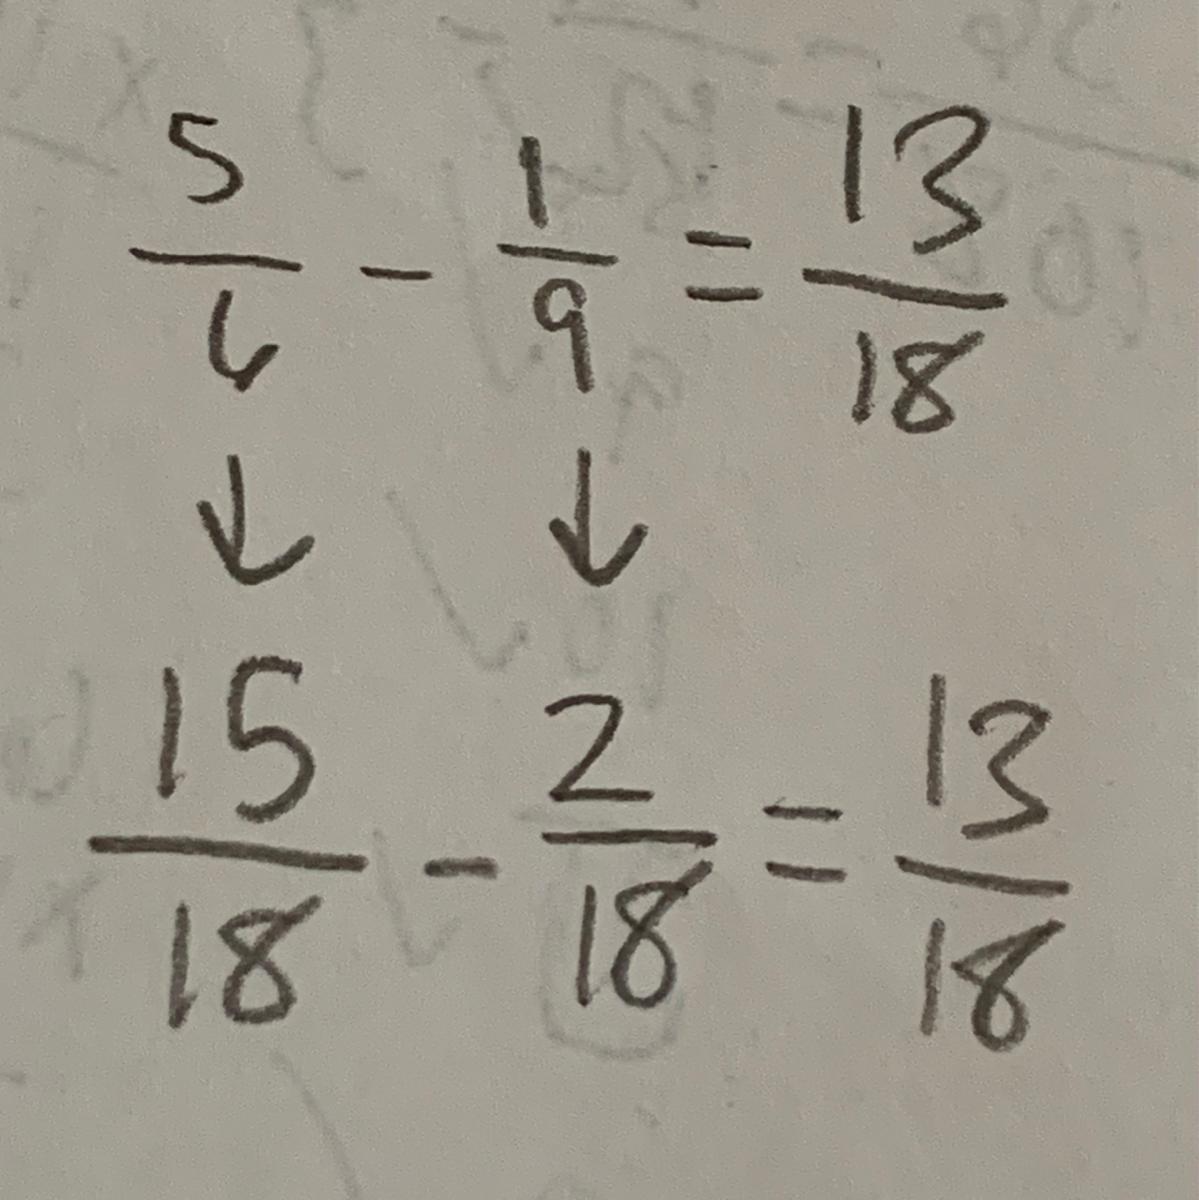 5/6 - 1/9 = 13/18
↓ ↓
15/18 - 2/18 = 13/18